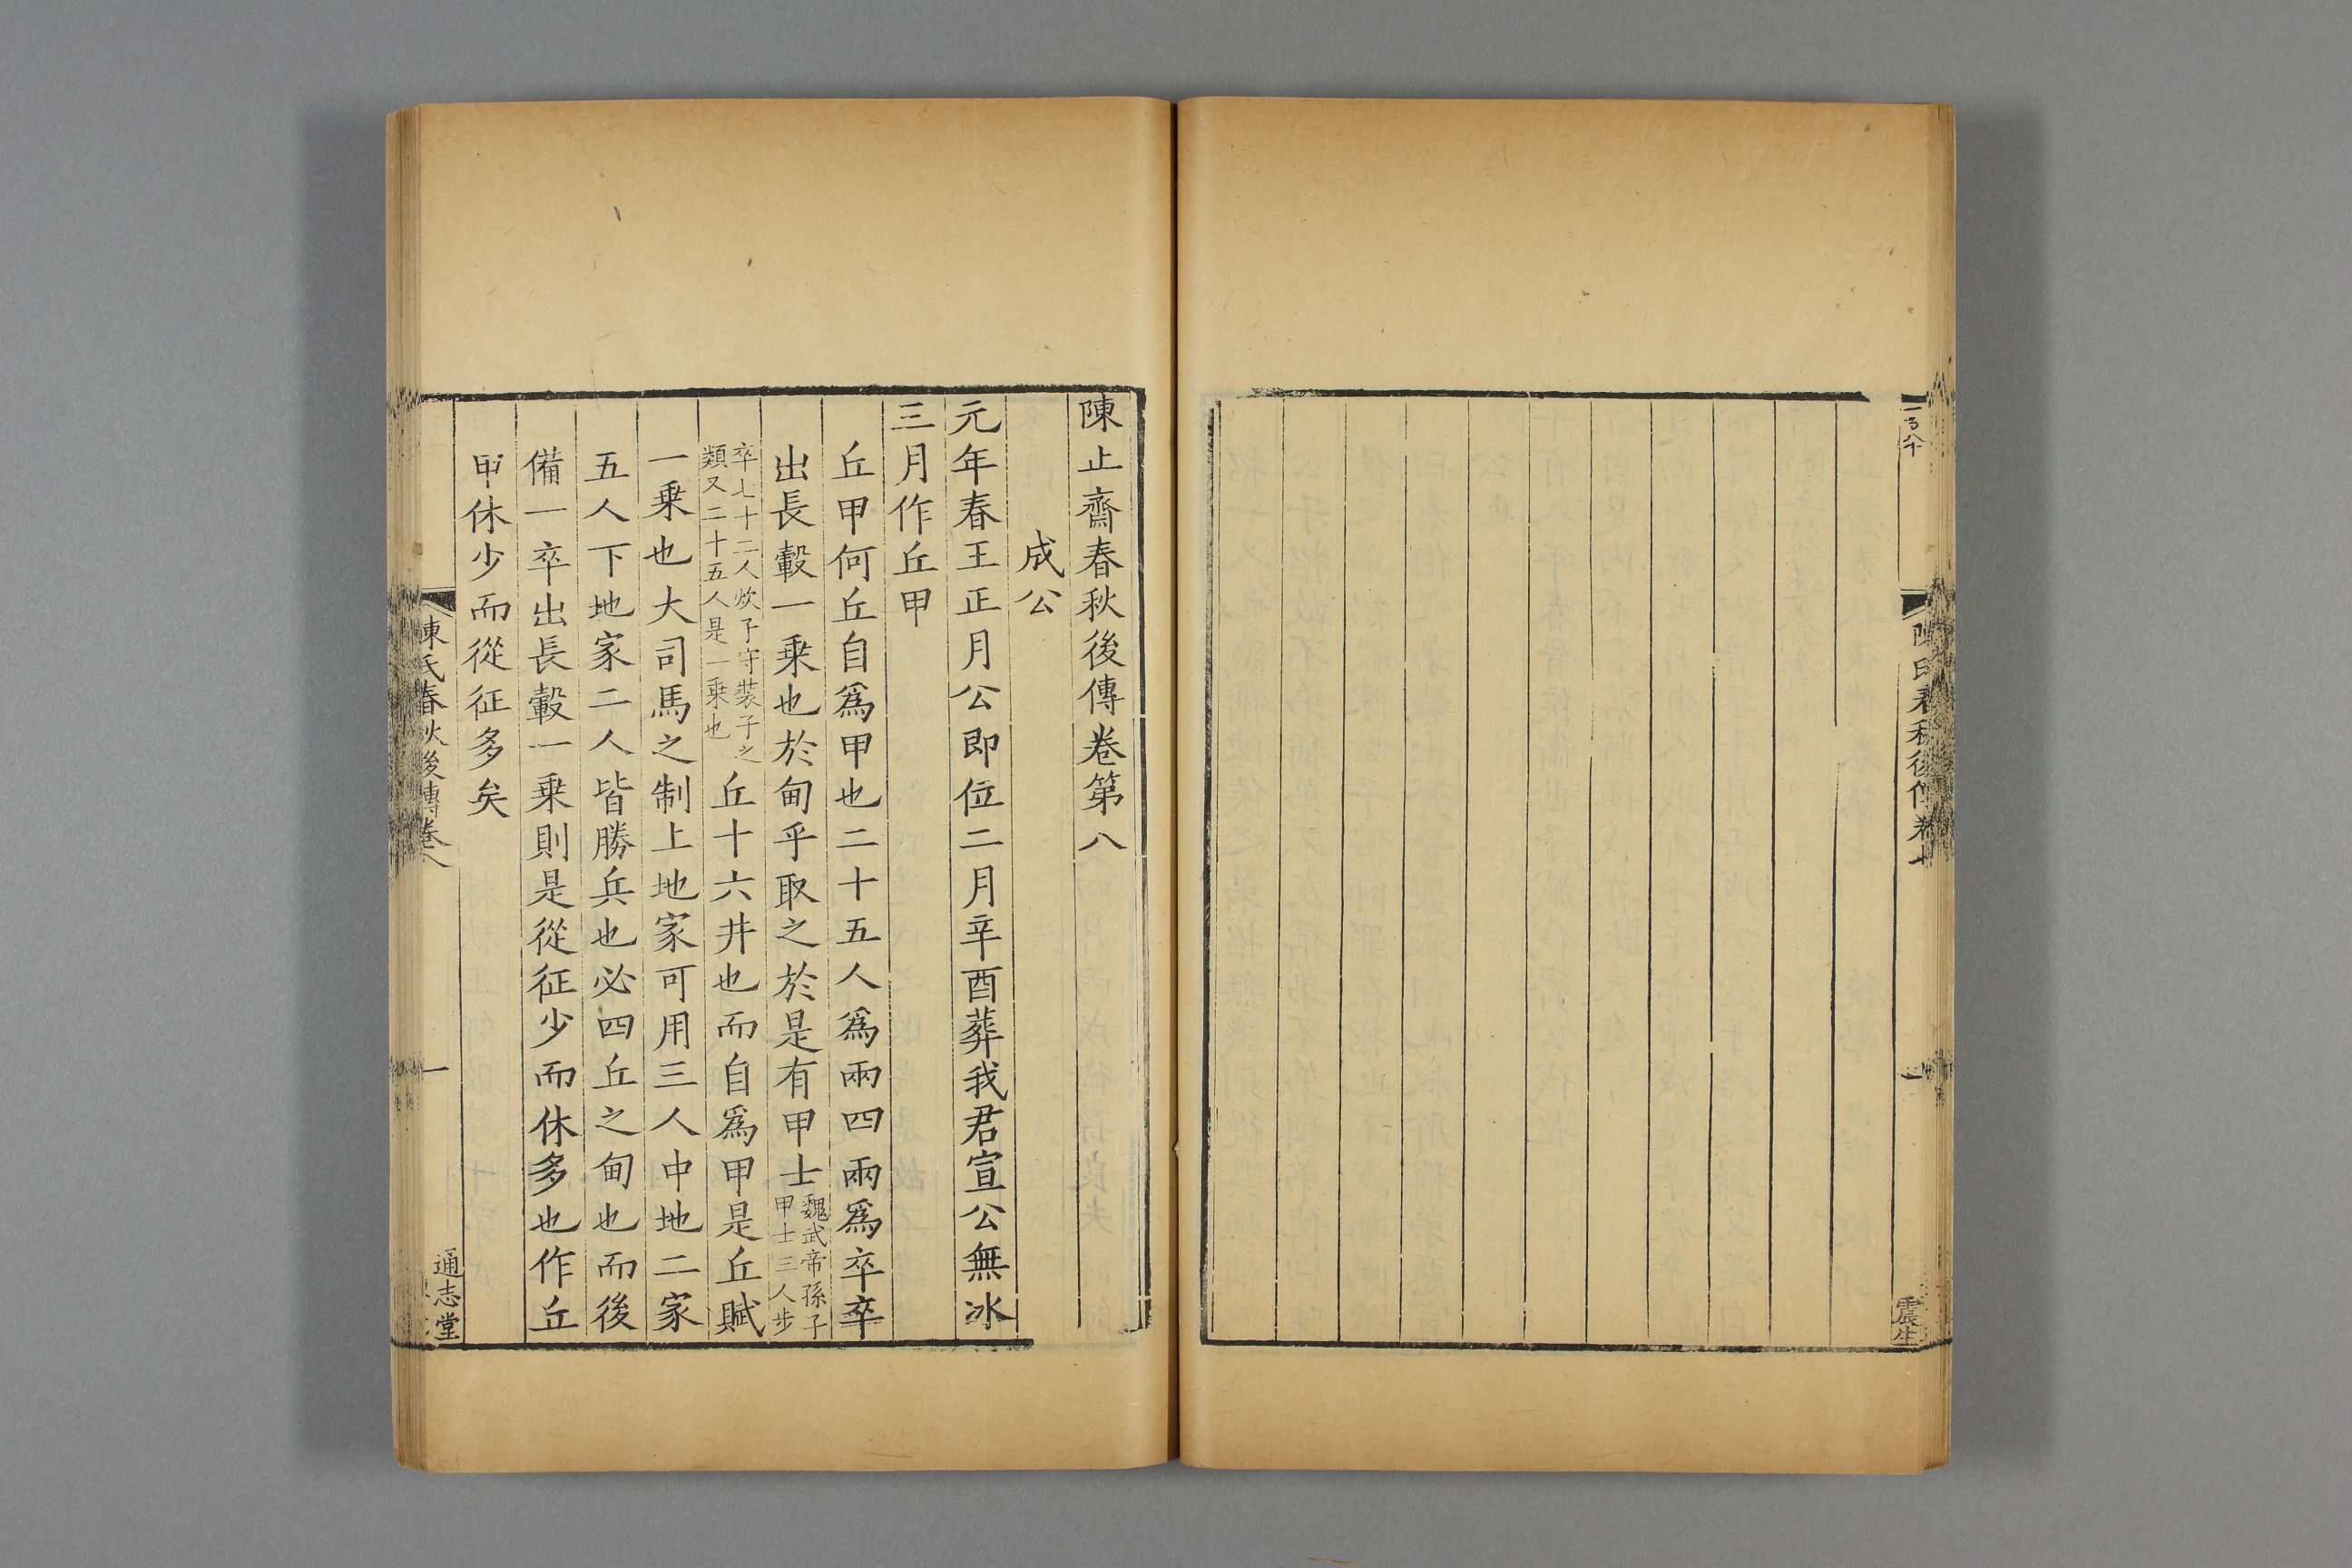 陳氏春秋後傳卷七
一
震生
陳止齋春秋後傳卷第八
成公
元年春王正月公即位二月辛酉葬我君宣公無冰
三月作丘甲
丘甲何丘自爲甲也二十五人爲兩四兩爲卒卒
出長轂一乗也於甸乎取之於是有甲士魏武帝孫子甲士三人步
卒七十二人炊子守裝子之類又二十五人是一乗也丘十六井也而自爲甲是丘賦
一乗也大司馬之制上地家可用三人中地二家
五人下地家二人皆勝兵也必四丘之甸也而後
備一卒出長轂一乗則是從征少而休多也作丘
甲休少而從征多矣
陳氏春秋後傳卷八
一
通志堂